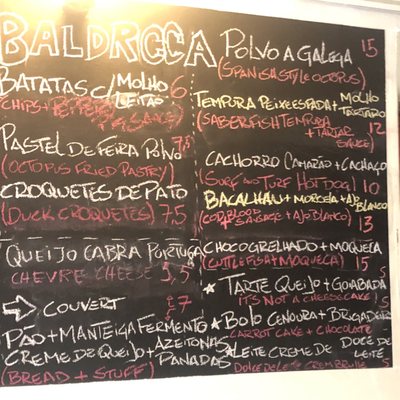 BALDRACCA
BATATAS C/ MOLHO 6
LEITÃO
(CHIPS + PEPPER PIG SAUCE)
PASTEL DE FEIRA POLVO 7,5
(OCTOPUS FRIED PASTRY)
CROQUETES DE PATO
(DUCK CROQUETES) 7.5
QUEIJO CABRA PORTUGA
CHEVRE CHEESE 5,5
COUVERT €7
PÃO + MANTEIGA FERMENTO
CREME DE QUEIJO + AZEITONAS
PANADAS
(BREAD + STUFF)
POLVO A GALEGA 15
(SPANISH STYLE OCTOPUS)
TEMPURA PEIXE ESPADA + MOLHO
TARTARO
(SABERFISH TEMPURA 12
+ TARTAR
SAUCE)
CACHORRO CAMARÃO + CACHAÇO
(SURF AND TURF HOT DOG) 10
BACALHAU + MORCELA + AJO
BLANCO
(COD, BLOOD
SAUSAGE + AJO BLANCO)
13
CHOCO GRELHADO + MOQUECA
(CUTTLEFISH + MOQUECA) 15
TARTE QUEIJO + GOIABADA 5
ITS NOT A CHEESECAKE!
BOLO CENOURA + BRIGADEIRO
CARROT CAKE + CHOCOLATE 5
LEITE CREME DE DOCE DE
LEITE
DOCE DE LEITE CREM BRULLE 5